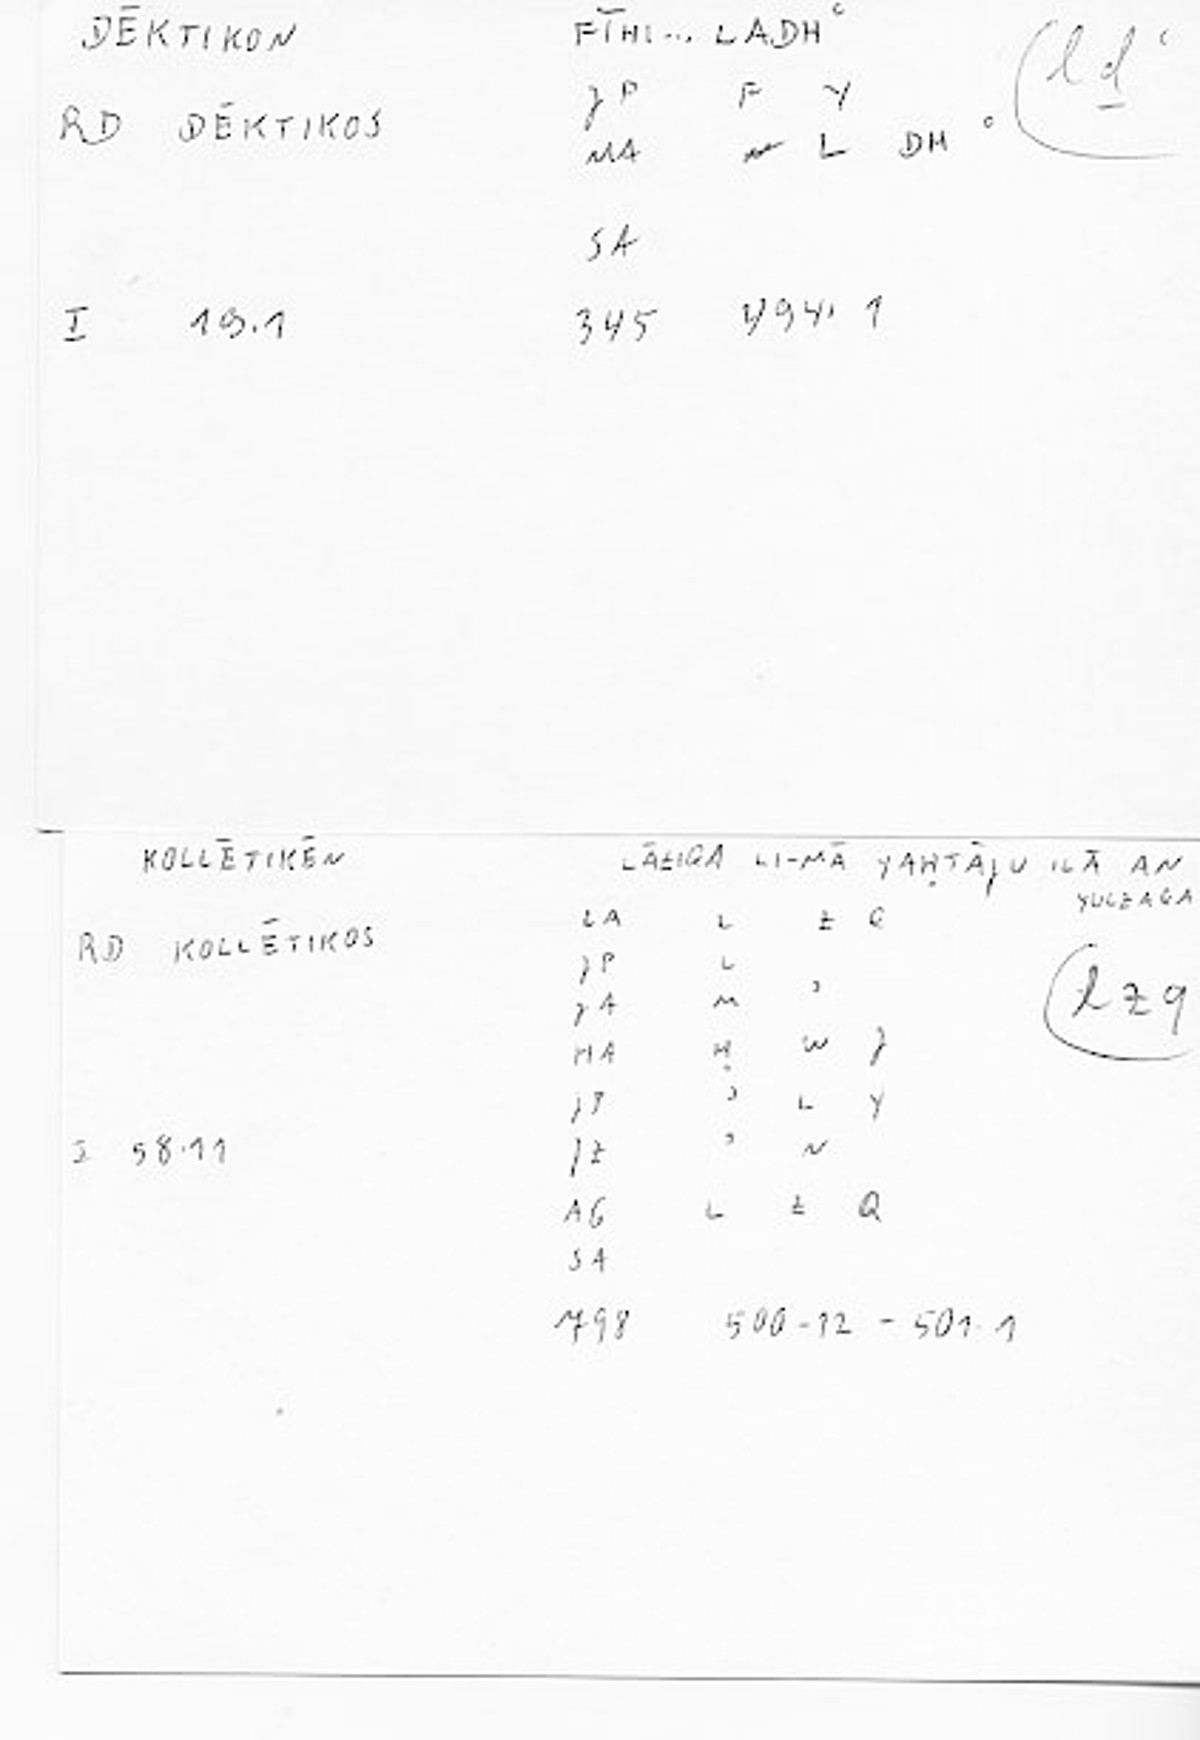 DĒKTIKON FĪHI... LADHʿ (ld̲ʿ
RD DĒKTIKOS JP F Y
MA L DH ʿ
SA
I 19.1 345 494. 1
KOLLĒTIKĒN LĀZIQA LI-MĀ YAḤTĀJU ILĀ AN
YULZAGA
RD KOLLĒTIKOS LA L Z Q
JP L (lzq
JA M ʾ
MA Ḥ W J
JP ʾ L Y
I 58.11 JZ ʾ N
AG L Z Q
SA
798 500-12 - 501. 1